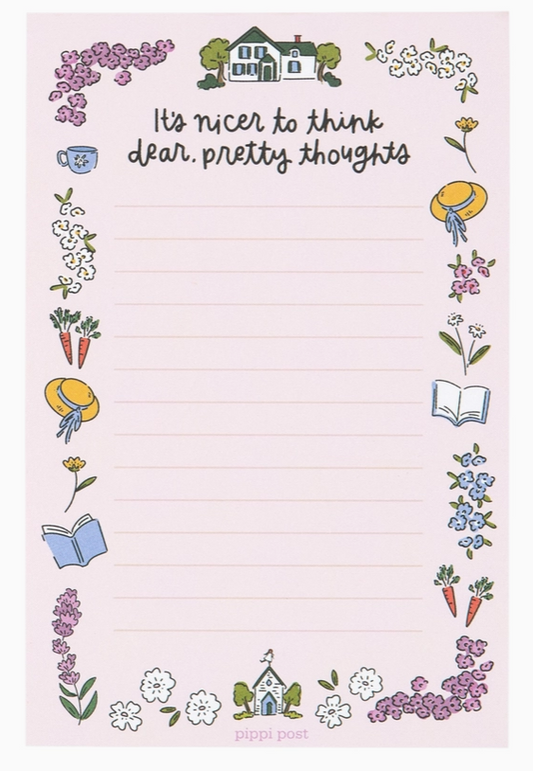 It's nicer to think
dear, pretty thoughts
pippi post